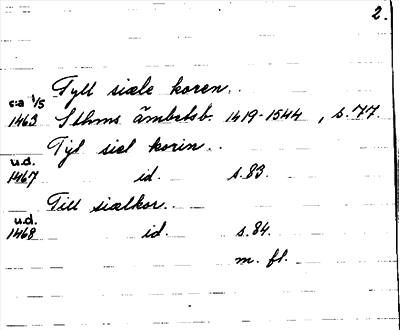 2.
Tyll siæle koren.
c:a 1/5
1463 Sthms ämbetsb. 1419-1544, s. 77.
Tyl siel korin.
u.d.
1467 id. s. 83.
Till siælkor.
u.d.
1468 id. s. 84.
m. fl.